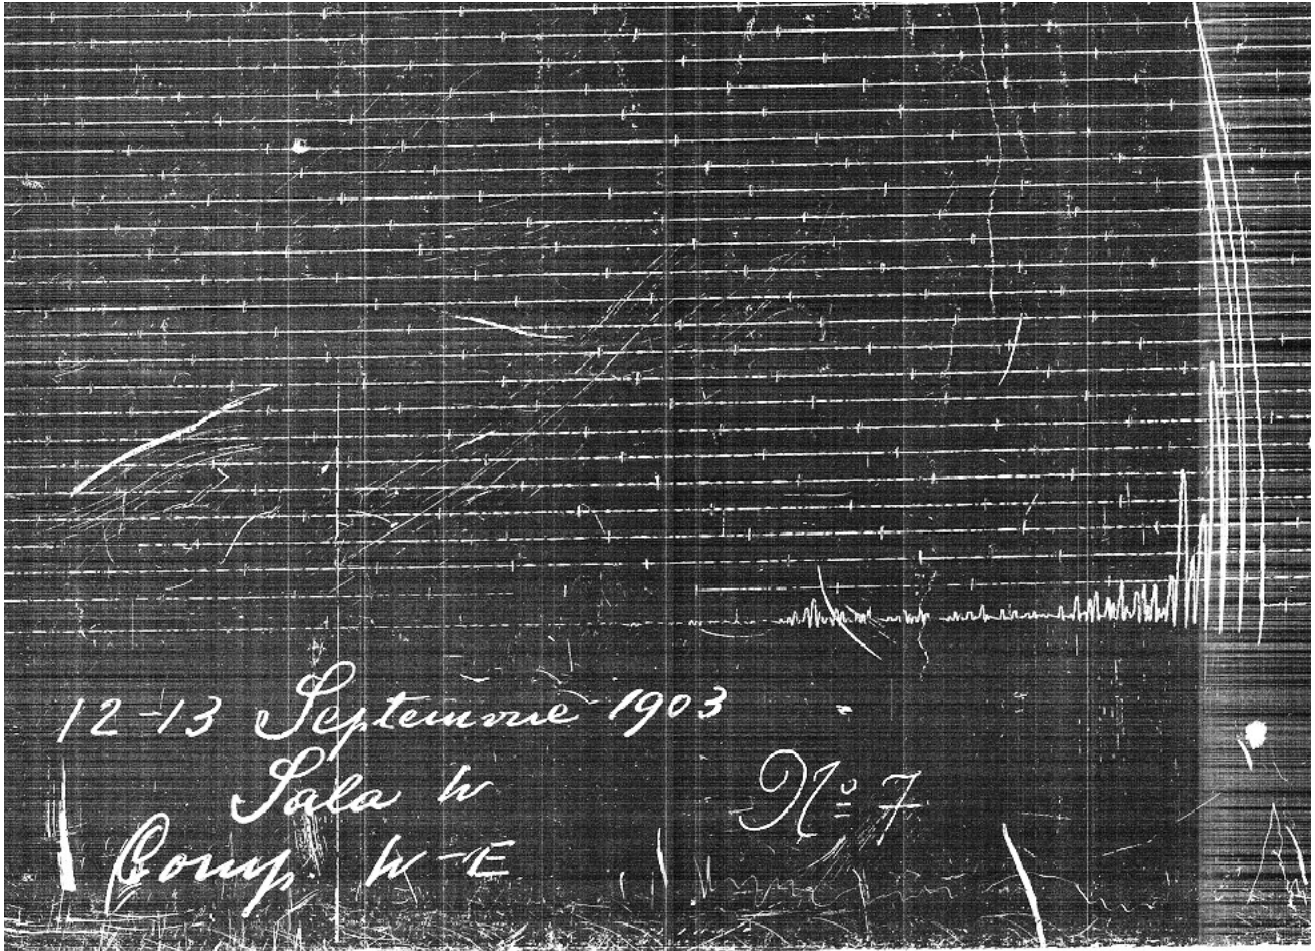 12-13 Septemvrie 1903
Sala W
Nº 7
Comp. W-E